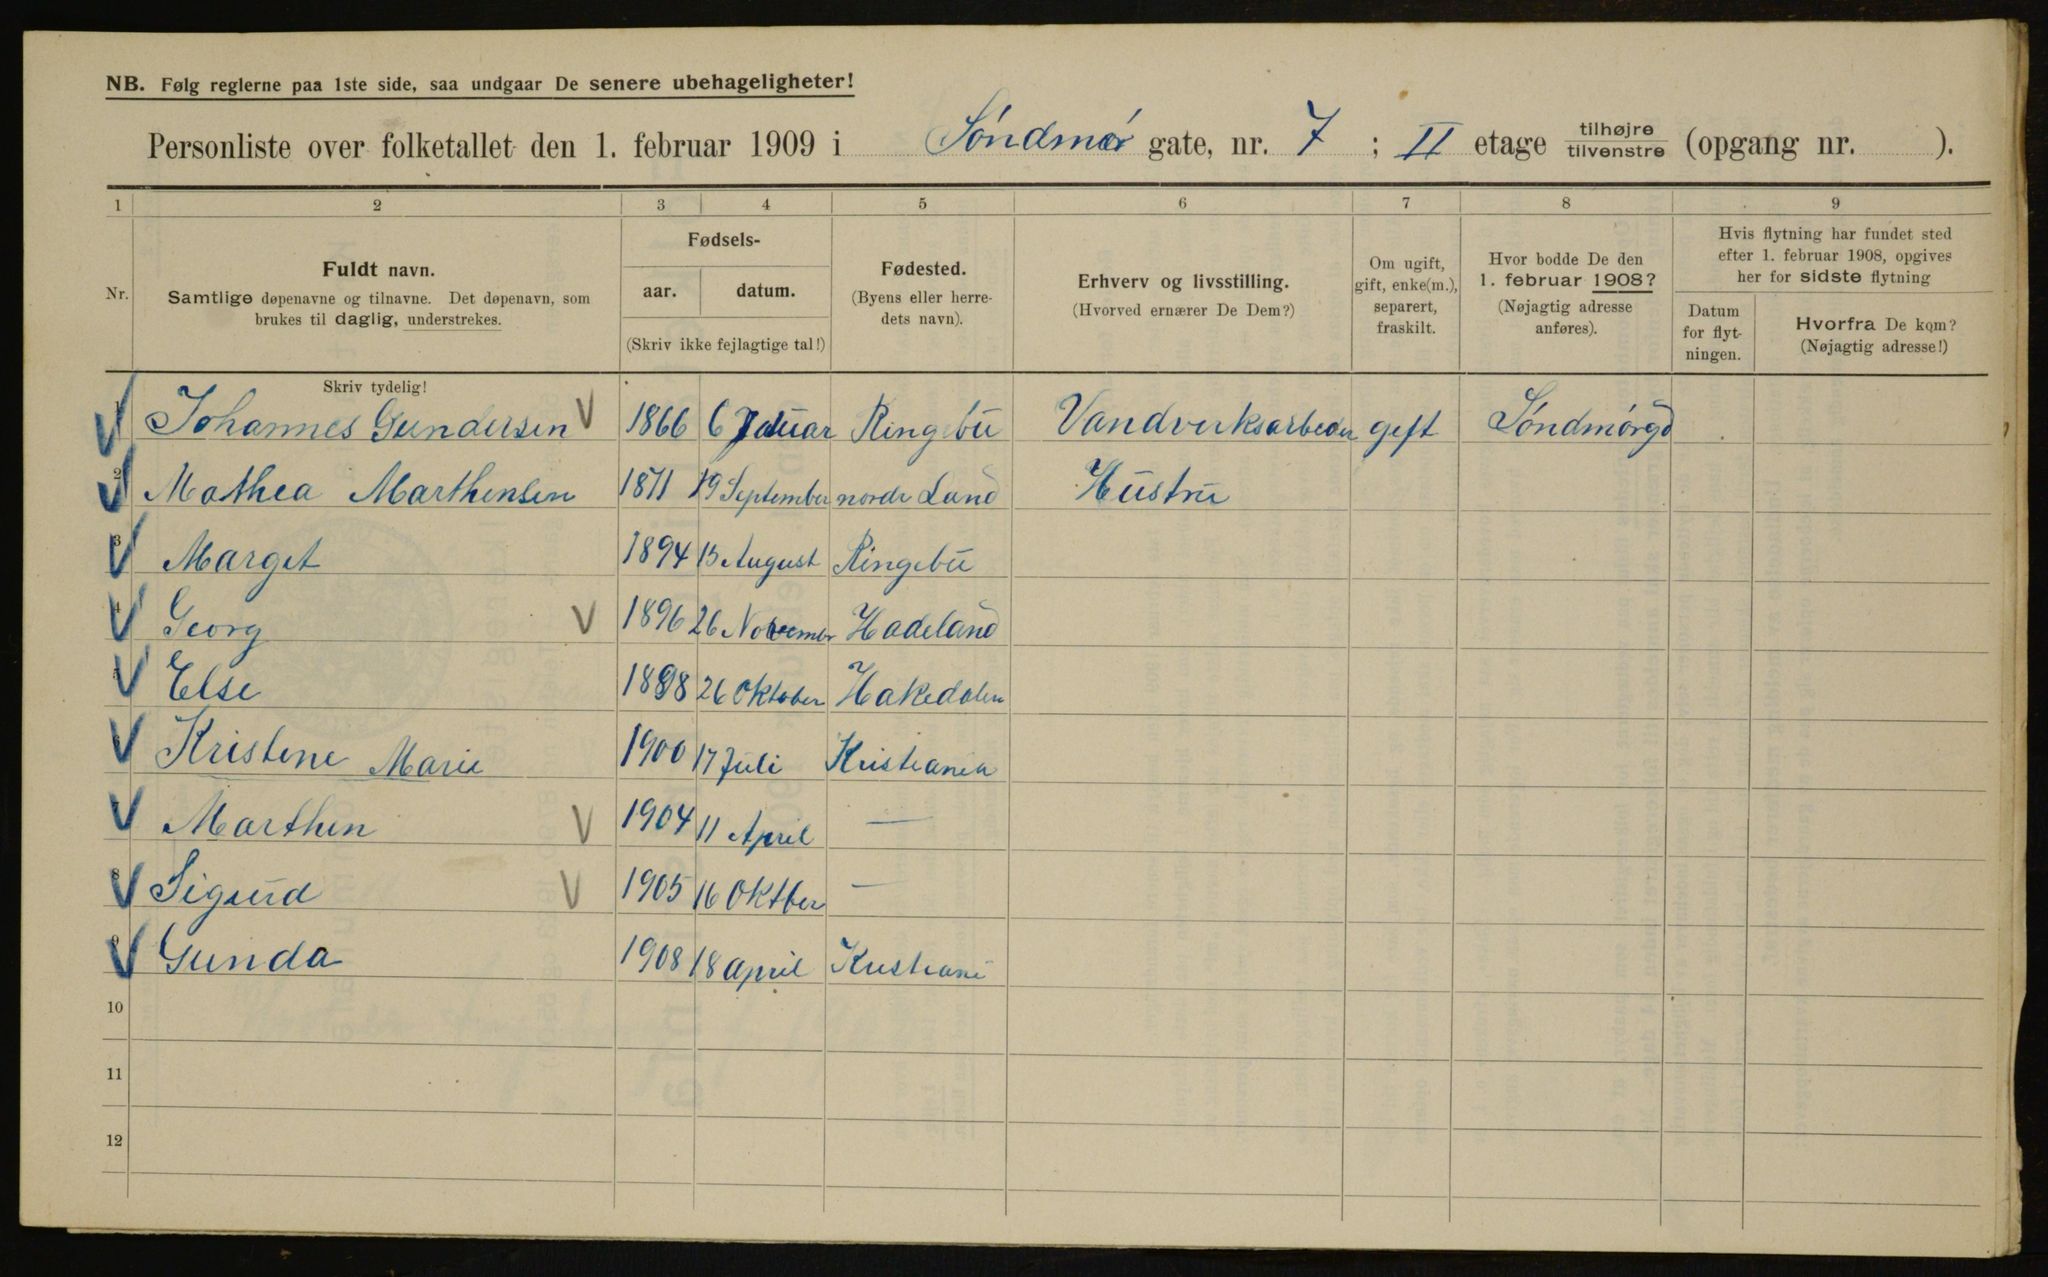 NB. Følg reglerne paa 1ste side, saa undgaar De senere ubehageligheter!
Personliste over folketallet den 1. februar 1909 i Söndmör gate, nr. 7 ; II etage tilhøjre tilvenstre (opgang nr. ).
1 2 3 4 5 6 7 8 9
Nr.
Fuldt navn.
Samtlige døpenavne og tilnavne. Det døpenavn, som
brukes til daglig, understrekes.
Fødsels-
aar. datum.
(Skriv ikke fejlagtige tal!)
Fødested.
(Byens eller herre-
dets navn).
Erhverv og livsstilling.
(Hvorved ernærer De Dem?)
Om ugift,
gift, enke(m.),
separert,
fraskilt.
Hvor bodde De den
1. februar 1908?
(Nøjagtig adresse
anføres).
Hvis flytning har fundet sted
efter 1. februar 1908, opgives
her for sidste flytning
Datum
for flyt-
ningen.
Hvorfra De kom?
(Nøjagtig adresse!)
Skriv tydelig!
1 Johannes Gundersen V 1866 6 Ringebu Vandverksarbeder geft
2 Mathea Marthensen 1871 19 September nordre Land Hustru
3 Marget 1894 15 August Ringebu
4 Georg V 1896 26 Hadeland
5 Else 1898 26 Oktober Hakedalen
Kristine Marie 1900 17 Juli Kristiania
Marthin V 1904 11 April —
8 Sigurd V 1905 16 Oktber —
9 Gunda 1908 18 april Kristiani
10
11
12